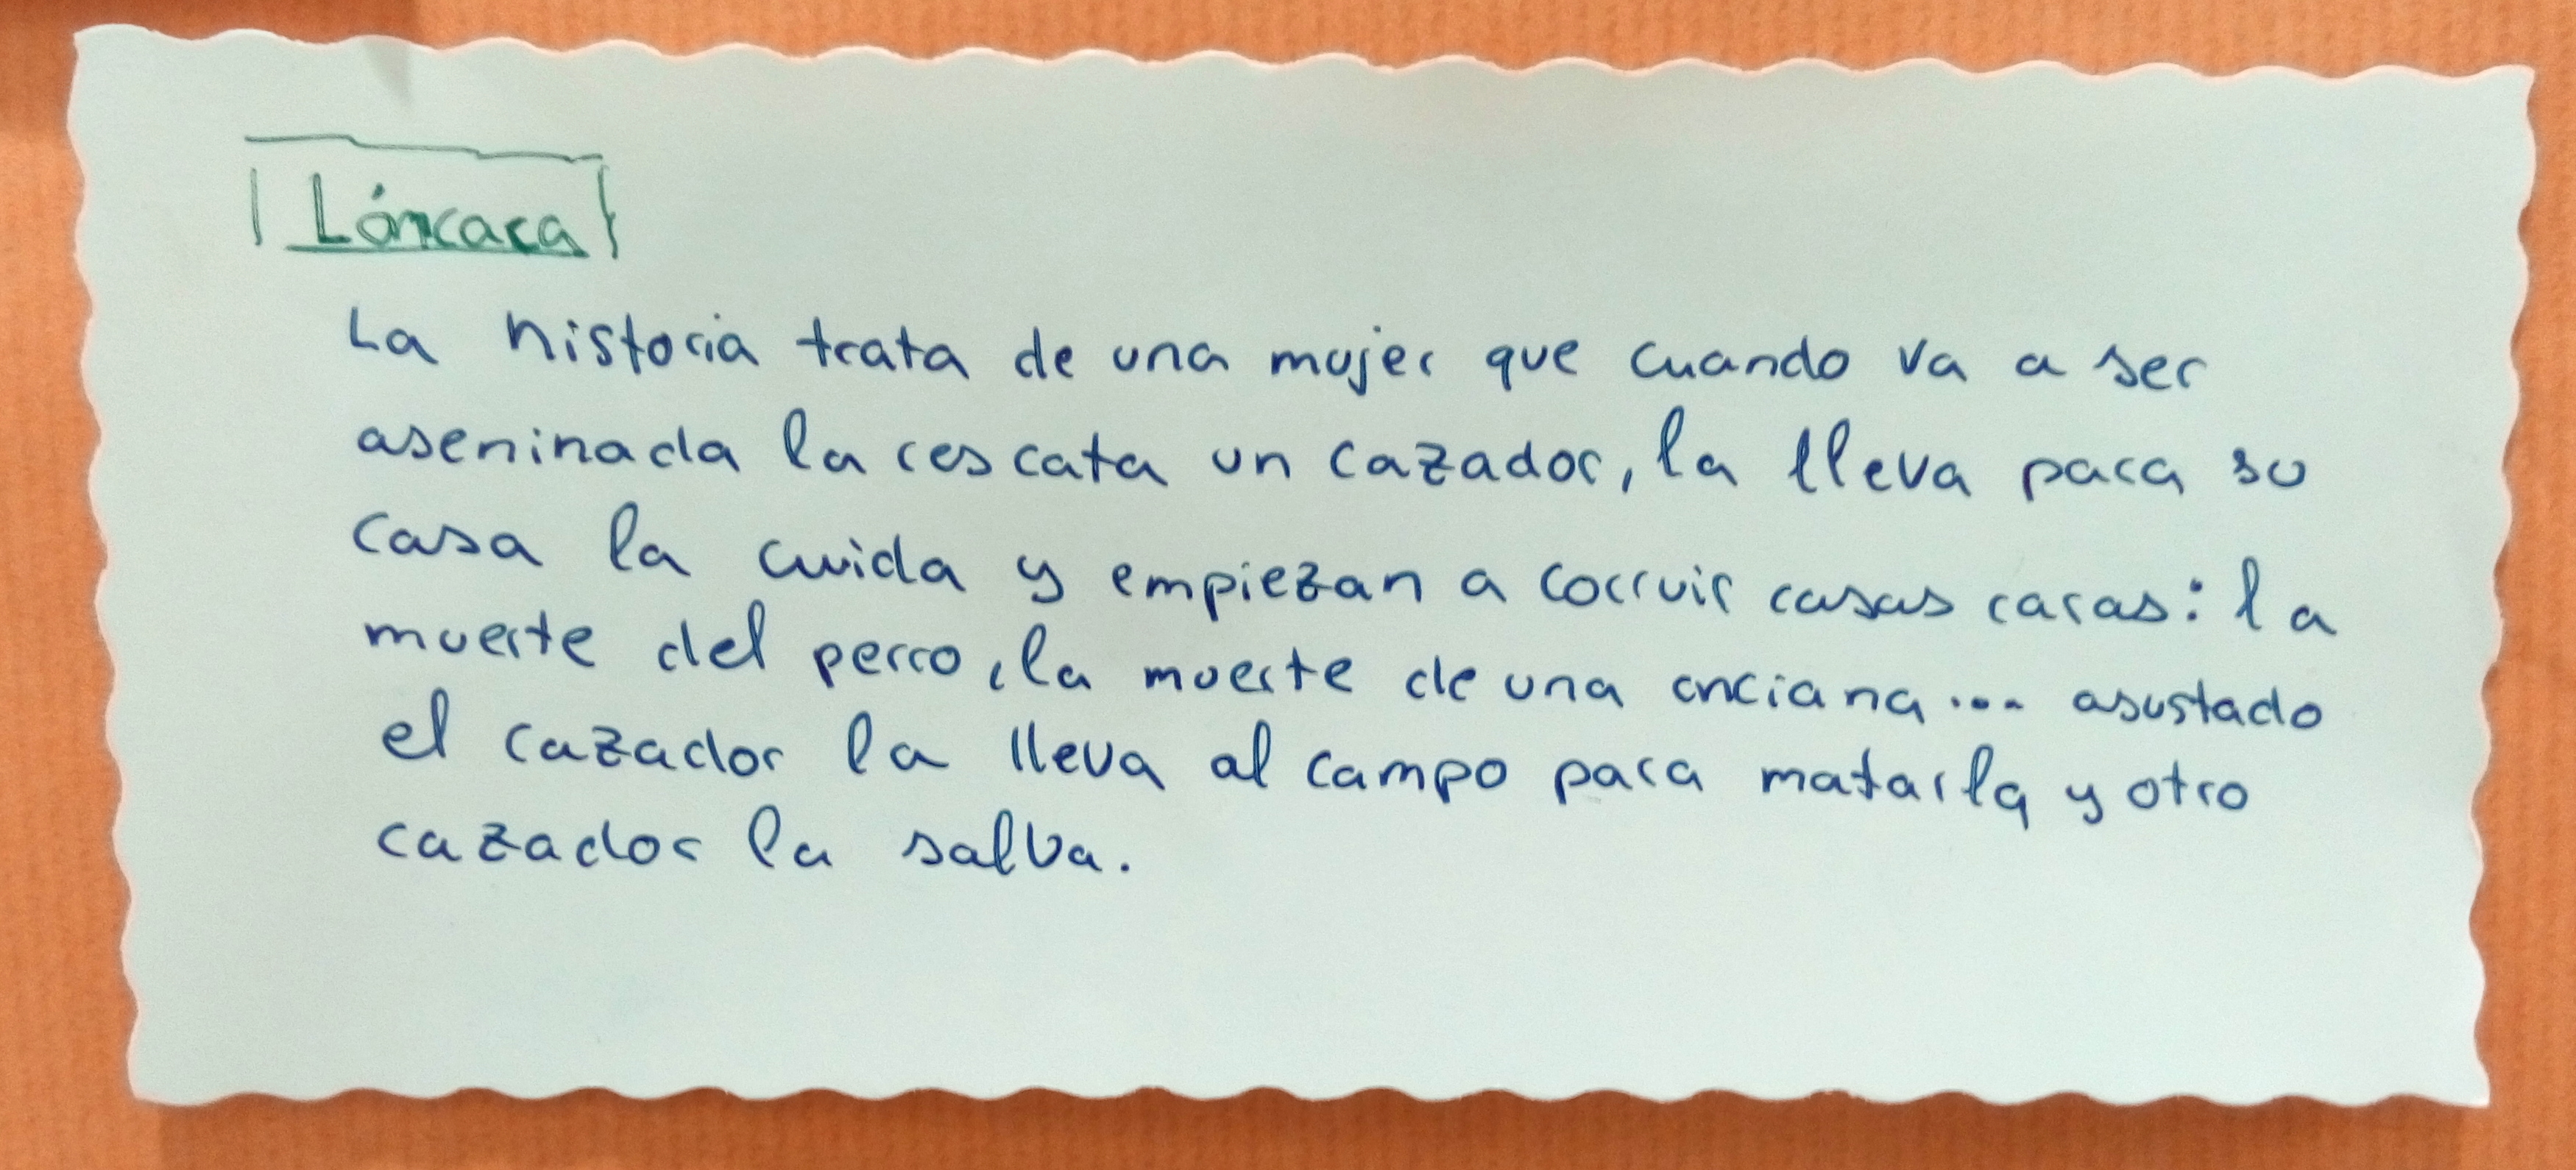 Láncara
La historia trata de una mujer que cuando va a ser
aseninada la rescata un cazador, la lleva para su
casa la cuida y empiezan a corruir casas raras: la
muerte del perro, la muerte de una anciana... asustado
el cazador la lleva al campo para matarla y otro
cazador la salva.